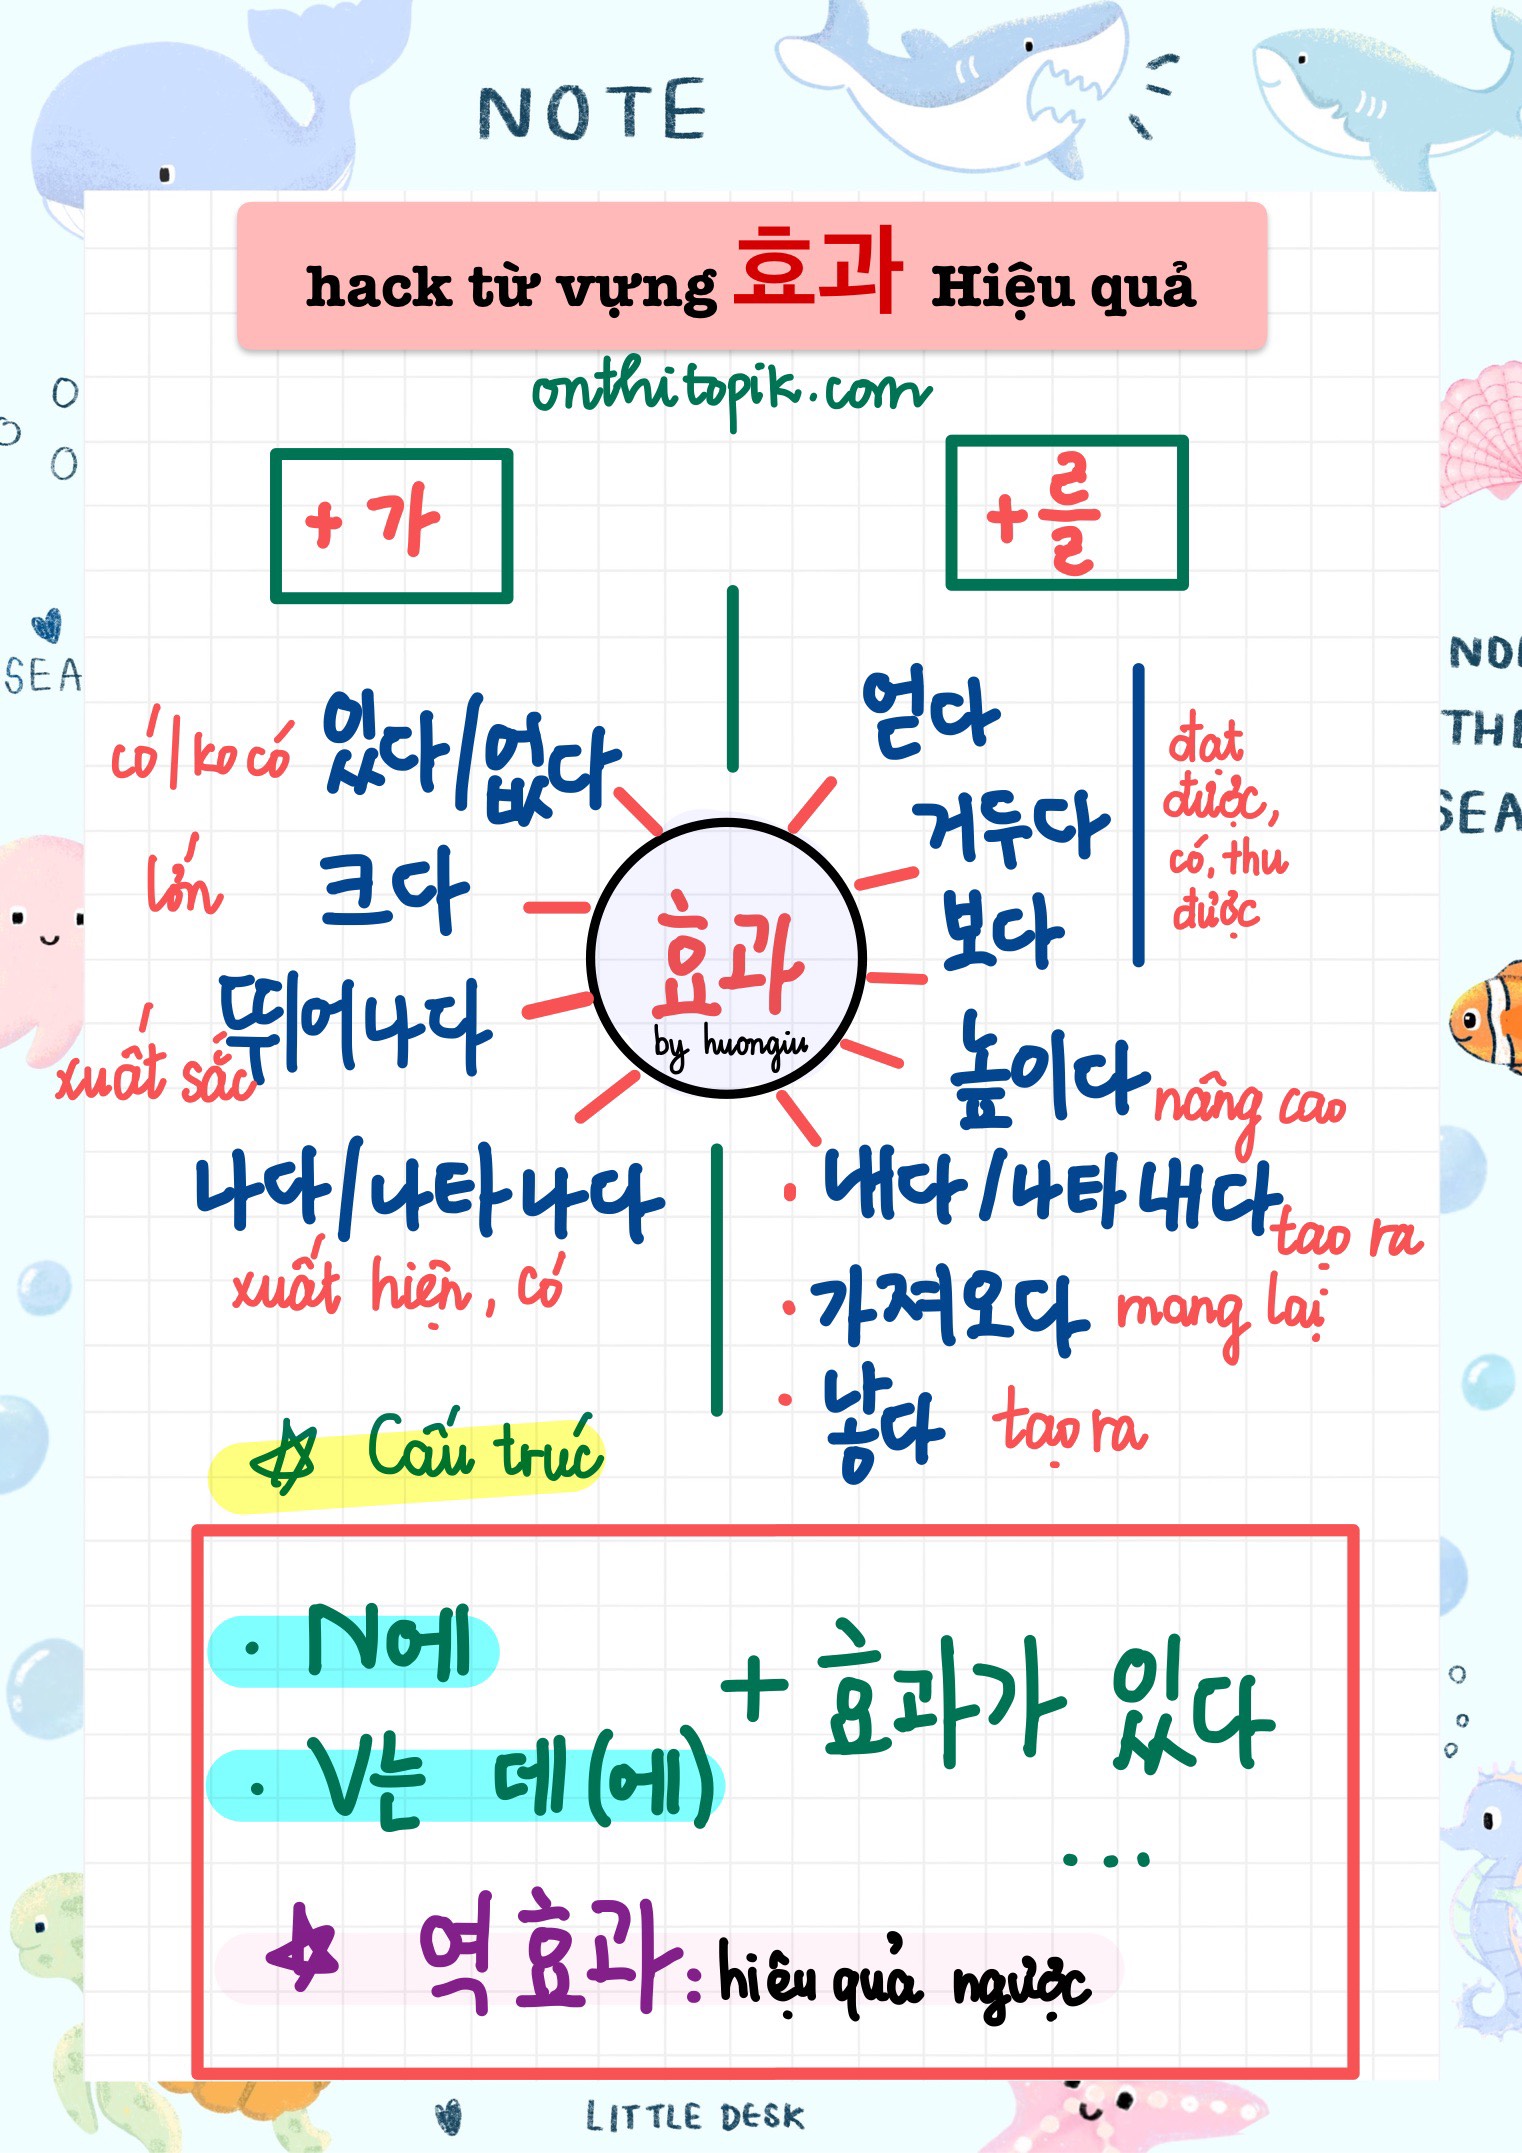 NOTE
hack từ vựng 효과 Hiệu quả
onthitopik.com
+ 가
+ 를
SEA
có/ko có 있다/없다
lớn 크다
뛰어나다
xuất sắc
나다/나타나다
xuất hiện, có
효과
by huongiu
얻다
거두다
보다
đạt
được,
có, thu
được
높이다 nâng cao
• 내다/나타내다 tạo ra
• 가져오다 mang lại
• 낳다 tạo ra
SEA
☆ Cấu trúc
• N에
• V는 데(에)
+ 효과가 있다
...
☆ 역효과: hiệu quả ngược
LITTLE DESK